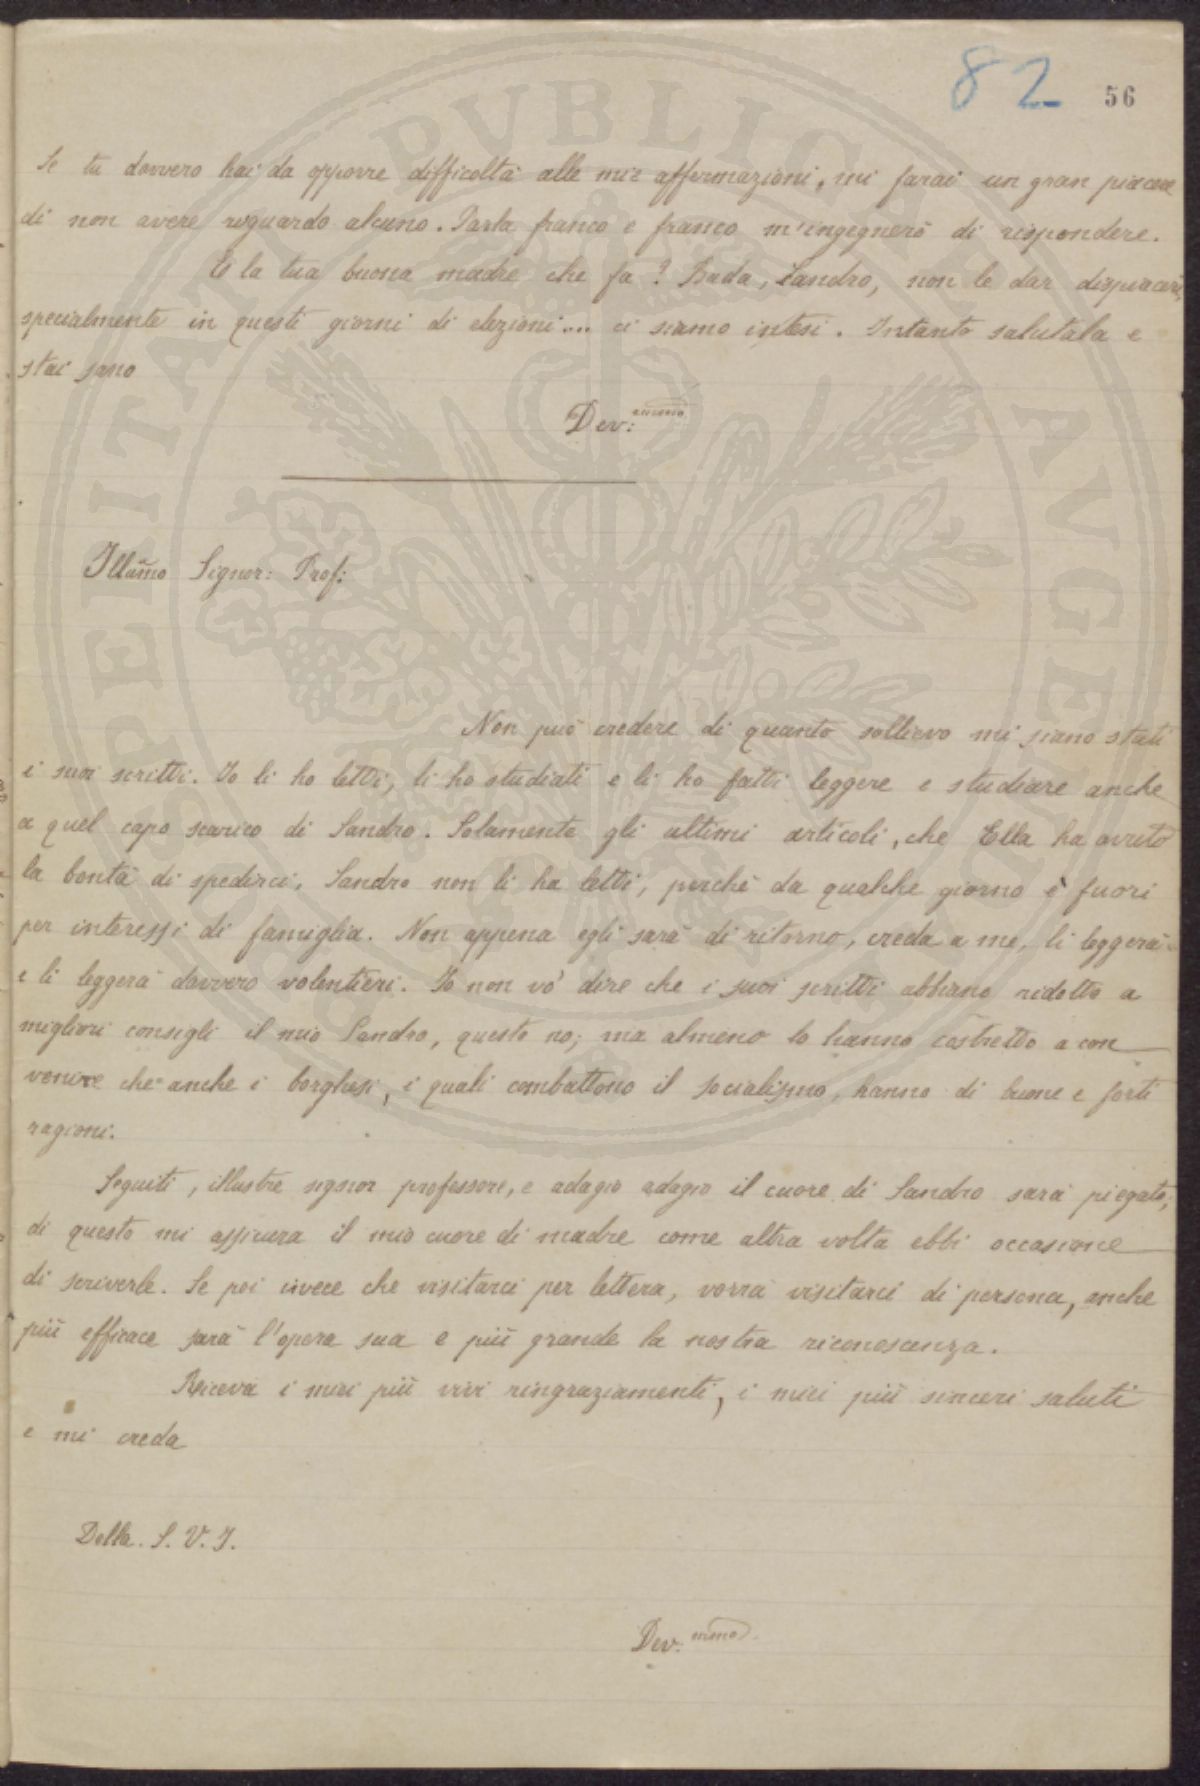 82 56
Se tu davvero hai da opporre difficoltà alle mie affermazioni, mi farai un gran piacere
di non avere riguardo alcuno. Parla franco e franco m'ingegnerò di rispondere.
E la tua buona madre che fa? Bada, Sandro, non le dar dispiaceri,
specialmente in questi giorni di elezioni... ci siamo intesi. Intanto salutala e
stai sano
Dev:
Illũmo Signor: Prof:
Non può credere di quanto sollievo mi siano stati
i suoi scritti. Io li ho letti, li ho studiati e li ho fatti leggere e studiare anche
a quel capo scarico di Sandro. Solamente gli ultimi articoli, che Ella ha avuto
la bontà di spedirci, Sandro non li ha letti, perchè da qualche giorno è fuori
per interessi di famiglia. Non appena egli sarà di ritorno, creda a me, li leggerà
e li leggerà davvero volentieri. Io non vo' dire che i suoi scritti abbiano ridotto a
migliori consigli il mio Sandro, questo no; ma almeno lo hanno costretto a con
venire che anche i borghesi, i quali combattono il socialismo, hanno di buone e forti
ragioni.
Seguiti, illustre signor professore, e adagio adagio il cuore di Sandro sarà piegato;
di questo mi assicura il mio cuore di madre come altra volta ebbi occasione
di scriverle. Se poi invece che visitarci per lettera, vorrà visitarci di persona, anche
più efficace sarà l'opera sua e più grande la nostra riconoscenza.
Riceva i miei più vivi ringraziamenti, i miei più sinceri saluti
e mi creda
Della. S. V. I.
Dev: mma
PROSPERITATI PUBLICAE AUGENDAE